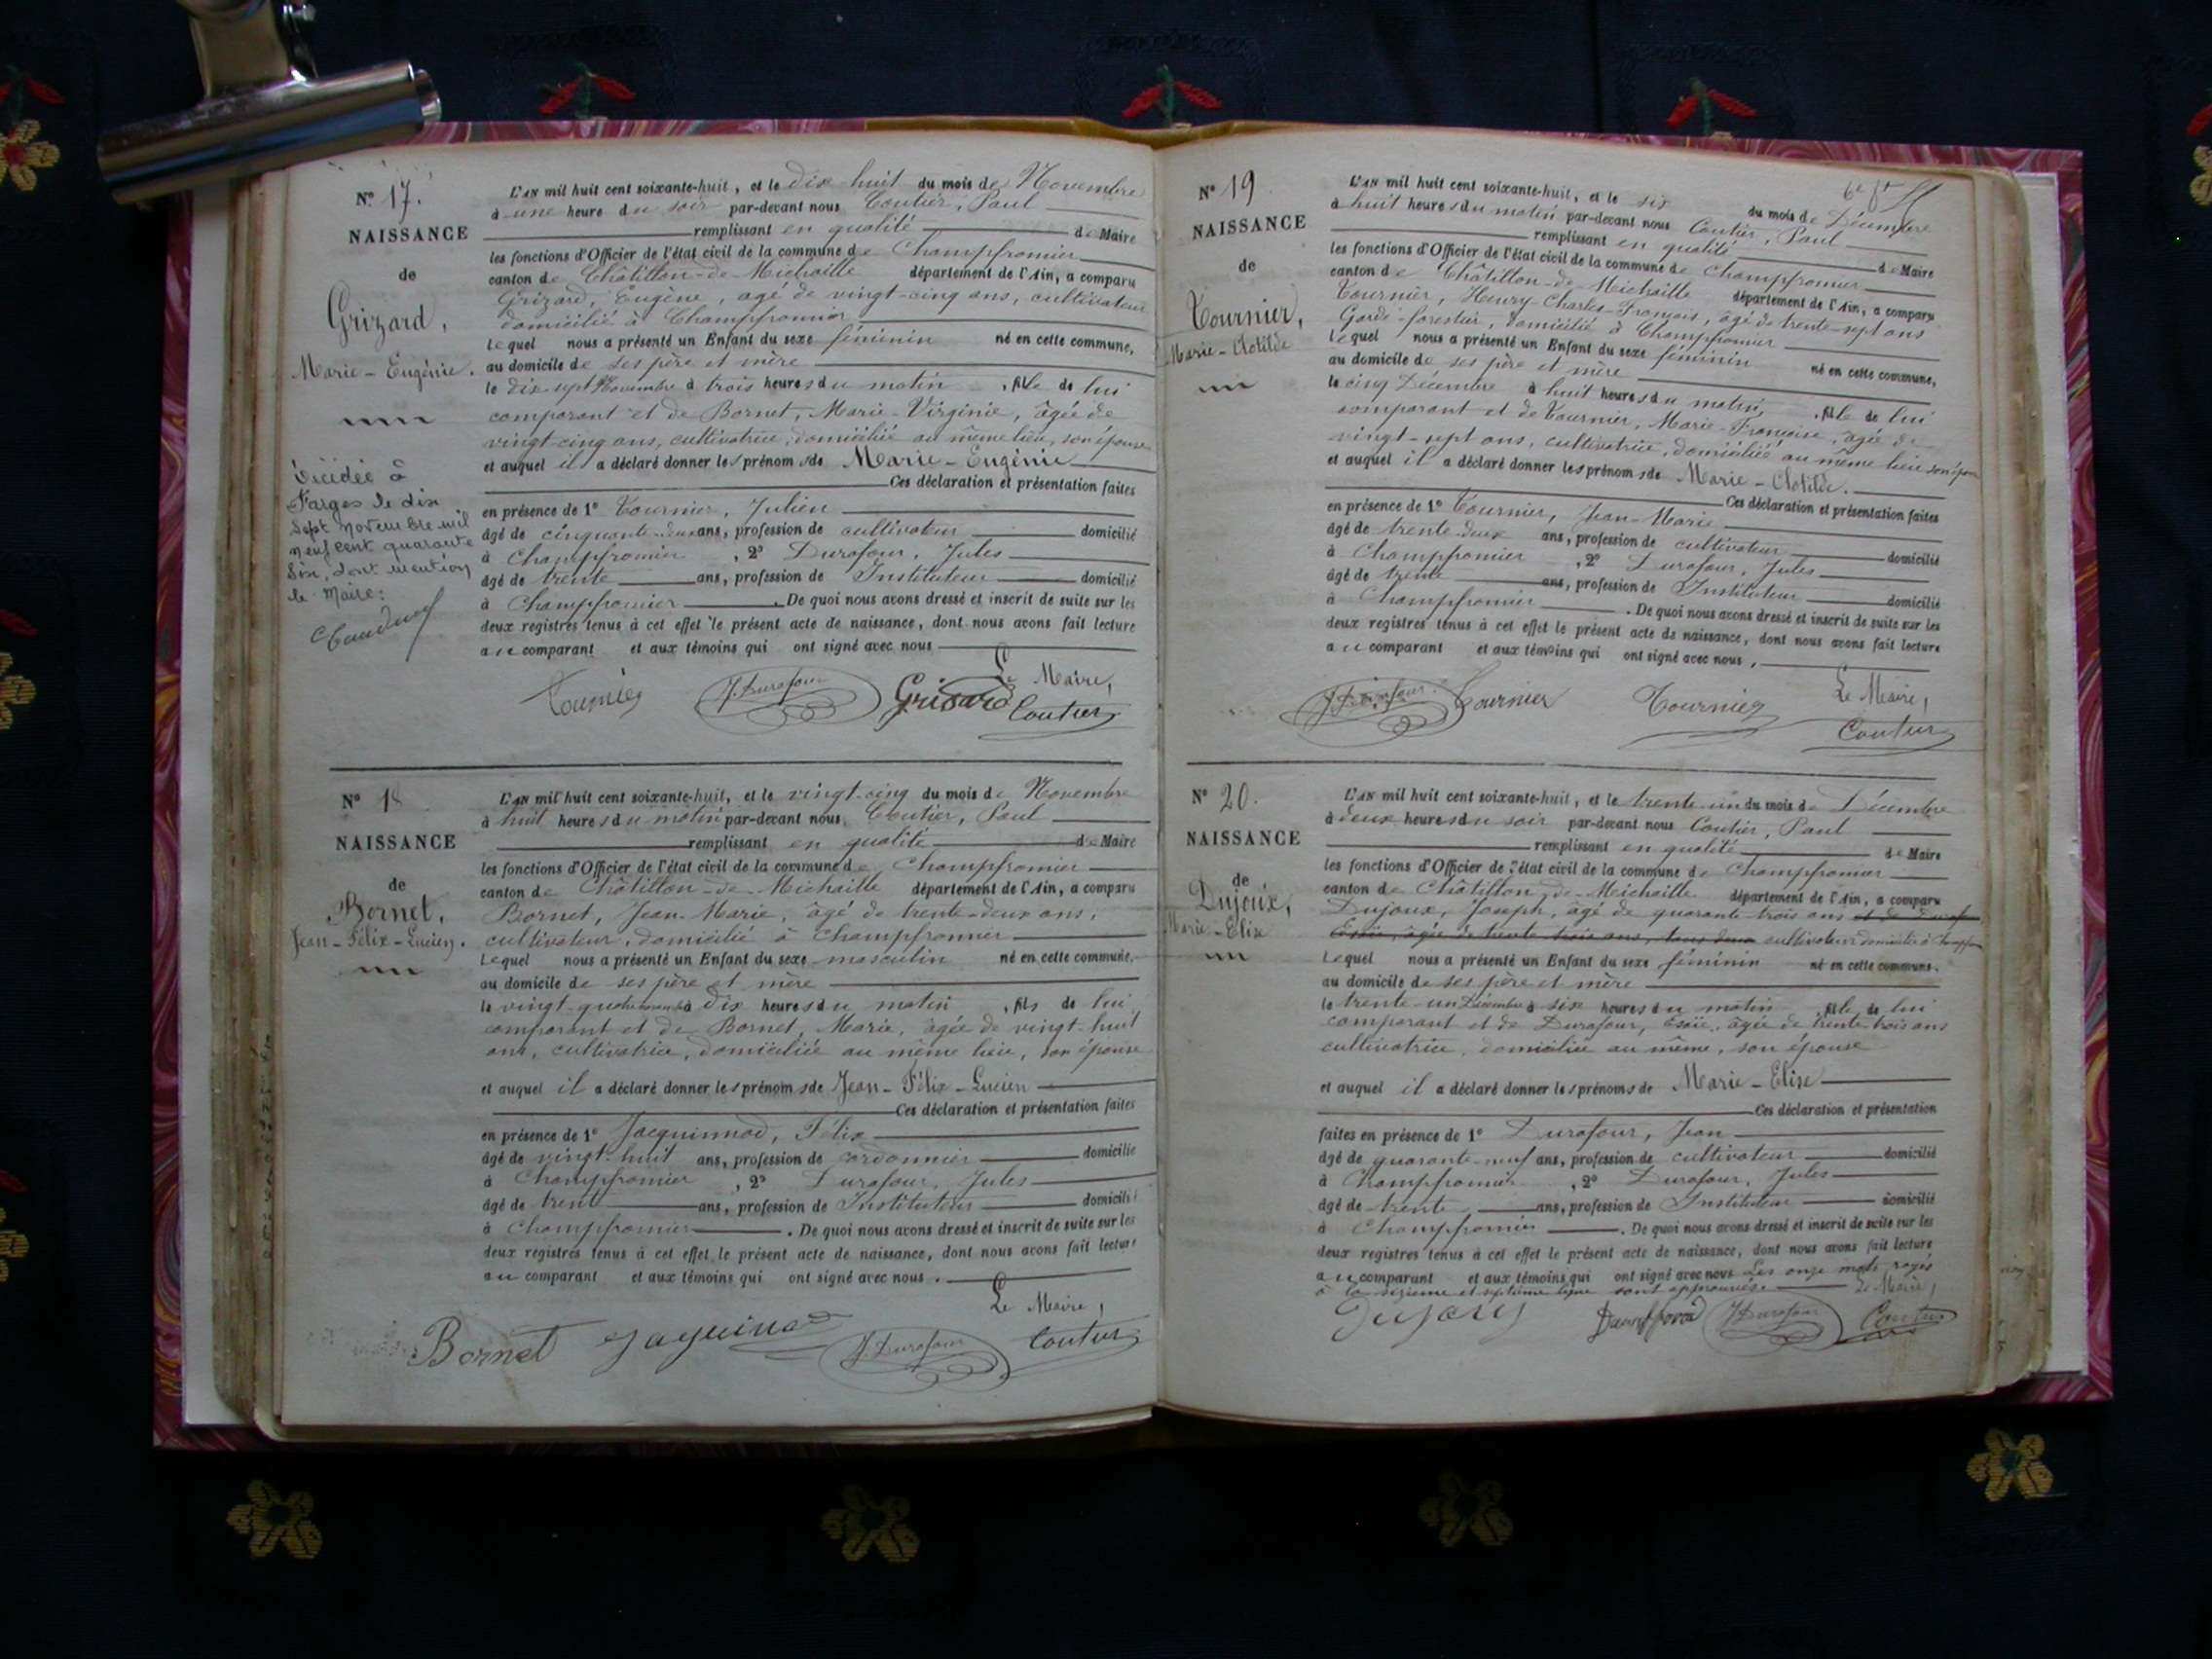 N° 17.
NAISSANCE
de
Grizard,
Marie-Eugénie.
Décédée à
Farges le dix
sept novembre mil
neuf cent quarante
six, dont mention
le Maire:
L'AN mil huit cent soixante-huit, et le dix-huit du mois de Novembre
à une heure du soir par-devant nous Coutier, Paul
remplissant en qualité de Maire
les fonctions d'Officier de l'état civil de la commune de Champfromier
canton de Châtillon-de-Michaille département de l'Ain, a comparu
Grizard, Eugène, agé de vingt-cinq ans, cultivateur
domicilié à Champfromier
Lequel nous a présenté un Enfant du sexe féminin né en cette commune,
au domicile de ses père et mère
le dix-sept Novembre à trois heures du matin, fille de lui
comparant et de Bornet, Marie-Virginie, âgée de
vingt-cinq ans, cultivatrice, domiciliée au même lieu, son épouse
et auquel il a déclaré donner les prénoms de Marie-Eugénie
Ces déclaration et présentation faites
en présence de 1° Tournier, Julien
âgé de cinquante-deux ans, profession de cultivateur domicilié
à Champfromier, 2° Durafour, Jules
âgé de trente ans, profession de Instituteur domicilié
à Champfromier. De quoi nous avons dressé et inscrit de suite sur les
deux registres tenus à cet effet le présent acte de naissance, dont nous avons fait lecture
au comparant et aux témoins qui ont signé avec nous
Le Maire,
Tournier J. Durafour Grisard Coutier
N° 18
NAISSANCE
de
Bornet,
Jean-Félix-Lucien.
L'AN mil huit cent soixante-huit, et le vingt-cinq du mois de Novembre
à huit heures du matin par-devant nous Coutier, Paul
remplissant en qualité de Maire
les fonctions d'Officier de l'état civil de la commune de Champfromier
canton de Châtillon-de-Michaille département de l'Ain, a comparu
Bornet, Jean-Marie, âgé de trente-deux ans,
cultivateur, domicilié à Champfromier
Lequel nous a présenté un Enfant du sexe masculin né en cette commune,
au domicile de ses père et mère
le vingt-quatre novembre à dix heures du matin, fils de lui
comparant et de Bornet, Marie, âgée de vingt-huit
ans, cultivatrice, domiciliée au même lieu, son épouse
et auquel il a déclaré donner les prénoms de Jean-Félix-Lucien
Ces déclaration et présentation faites
en présence de 1° Jacquinnod, Félix
âgé de vingt-huit ans, profession de cordonnier domicilié
à Champfromier, 2° Durafour, Jules
âgé de trente ans, profession de Instituteur domicilié
à Champfromier. De quoi nous avons dressé et inscrit de suite sur les
deux registres tenus à cet effet le présent acte de naissance, dont nous avons fait lecture
au comparant et aux témoins qui ont signé avec nous.
Le Maire,
Bornet Jaquinod J. Durafour Coutier
N° 19
NAISSANCE
de
Tournier,
Marie-Clotilde
L'AN mil huit cent soixante-huit, et le six du mois de Décembre
à huit heures du matin par-devant nous Coutier, Paul
remplissant en qualité de Maire
les fonctions d'Officier de l'état civil de la commune de Champfromier
canton de Châtillon-de-Michaille département de l'Ain, a comparu
Tournier, Henry-Charles-François, âgé de trente-sept ans
Garde-forestier, domicilié à Champfromier
Lequel nous a présenté un Enfant du sexe féminin né en cette commune,
au domicile de ses père et mère
le cinq Décembre à huit heures du matin, fille de lui
comparant et de Tournier, Marie-Françoise, âgée de
vingt-sept ans, cultivatrice, domiciliée au même lieu son épouse
et auquel il a déclaré donner les prénoms de Marie-Clotilde.
Ces déclaration et présentation faites
en présence de 1° Tournier, Jean-Marie
âgé de trente-deux ans, profession de cultivateur domicilié
à Champfromier, 2° Durafour, Jules
âgé de trente ans, profession de Instituteur domicilié
à Champfromier. De quoi nous avons dressé et inscrit de suite sur les
deux registres tenus à cet effet le présent acte de naissance, dont nous avons fait lecture
au comparant et aux témoins qui ont signé avec nous,
Le Maire,
J. Durafour Tournier Tournier Coutier
N° 20.
NAISSANCE
de
Dujoux,
Marie-Elise
L'AN mil huit cent soixante-huit, et le trente-un du mois de Décembre
à deux heures du soir par-devant nous Coutier, Paul
remplissant en qualité de Maire
les fonctions d'Officier de l'état civil de la commune de Champfromier
canton de Châtillon-de-Michaille département de l'Ain, a comparu
Dujoux, Joseph, âgé de quarante-trois ans et de
âgée de trente trois ans, tous deux cultivateur domicilié à
Lequel nous a présenté un Enfant du sexe féminin né en cette commune.
au domicile de ses père et mère
le trente-un Décembre à six heures du matin, fille de lui
comparant et de Durafour, âgée de trente trois ans
cultivatrice, domiciliée au même, son épouse
et auquel il a déclaré donner les prénoms de Marie-Elise
Ces déclaration et présentation
faites en présence de 1° Durafour, Jean
âgé de quarante-neuf ans, profession de cultivateur domicilié
à Champfromier, 2° Durafour, Jules
âgé de trente ans, profession de Instituteur domicilié
à Champfromier. De quoi nous avons dressé et inscrit de suite sur les
deux registres tenus à cet effet le présent acte de naissance, dont nous avons fait lecture
au comparant et aux témoins qui ont signé avec nous Les onze mots rayés
à la sixième et septième ligne sont approuvés. Le Maire,
J. Durafour Coutier